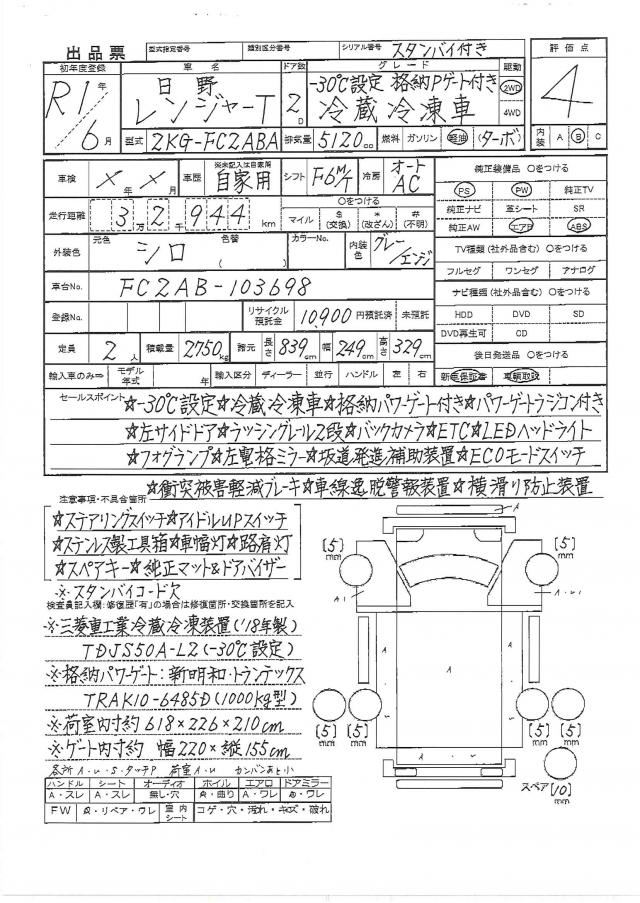 出品票 型式指定番号 類別区分番号 シリアル番号 スタンバイ付き 評価点
初年度登録 車名 ドア数 グレード 駆動
R1年 日野 -30℃設定 格納Pゲート付き 2WD 4
レンジャーT 2D 冷蔵冷凍車 4WD
6月 型式 2KG-FC2ABA 排気量 5120cc 燃料 ガソリン 軽油 (ターボ) 内装 A B C
車検 ×年×月 車歴 ※未記入は自家用 自家用 シフト F6M/T 冷房 オートAC 純正装備品 ○をつける
PS PW 純正TV
走行距離 3万2千944km ○をつける マイル $(交換) *(改ざん) #(不明) 純正ナビ 革シート SR
純正AW エアB ABS
外装色 元色 シロ 色替 カラーNo. 内装色 グレー/エンジ TV種類(社外品含む) ○をつける
フルセグ ワンセグ アナログ
車台No. FC2AB-103698 ナビ種類(社外品含む) ○をつける
登録No. リサイクル預託金 10,900円預託済 未預託 HDD DVD SD
DVD再生可 CD
定員 2人 積載量 2750kg 諸元 長さ 839cm 幅 249cm 高さ 329cm 後日発送品 ○をつける
輸入車のみ⇒ モデル年式 年 輸入区分 ディーラー 並行 ハンドル 左 右 新車保証書 車輌取説
セールスポイント ☆-30℃設定☆冷蔵冷凍車☆格納パワーゲート付き☆パワーゲートラジコン付き
☆左サイドドア☆ラッシングレール2段☆バックカメラ☆ETC☆LEDヘッドライト
☆フォグランプ☆左電格ミラー☆坂道発進補助装置☆ECOモードスイッチ
注意事項・不具合箇所 ☆衝突被害軽減ブレーキ☆車線逸脱警報装置☆横滑り防止装置
☆ステアリングスイッチ☆アイドルUPスイッチ
☆ステンレス製工具箱☆車幅灯☆路肩灯
☆スペアキー☆純正マット&ドアバイザー
※スタンバイコード欠
検査員記入欄:修復歴「有」の場合は修復箇所・交換箇所を記入
※三菱重工業冷蔵冷凍装置('18年製)
TDJS50A-L2(-30℃設定)
※格納パワーゲート:新明和・トランテックス
TRAK10-6485D(1000kg型)
※荷室内寸約618×226×210cm
※ゲート内寸約 幅220×縦155cm
各所 A・U・S・タッチP 荷室A・U カンバンあと小
ハンドル シート オーディオ ホイル エアロ ドアミラー
A・スレ A・スレ 無し・穴 A・曲り A・ワレ A・ワレ
FW A・リペア・ワレ 室内シート コゲ・穴・汚れ・キズ・破れ
A
[5]mm [5]mm
A1 A・U
A A
A
[5]mm [5]mm [5]mm [5]mm
A
スペア[10]mm